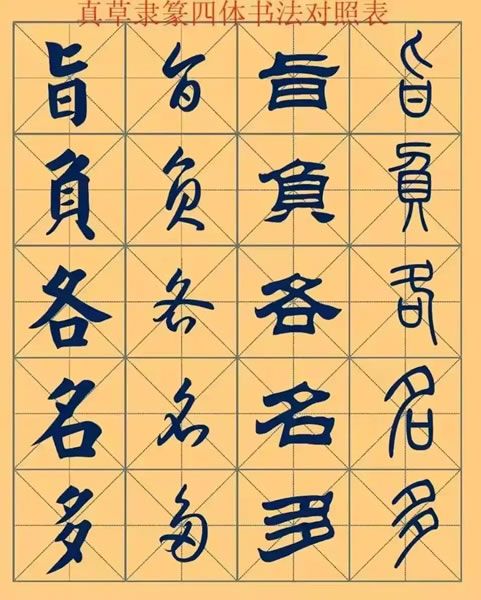 真草隶篆四体书法对照表
旨 旨 旨 旨
負 负 負 負
各 各 各 各
名 名 名 名
多 多 多 多